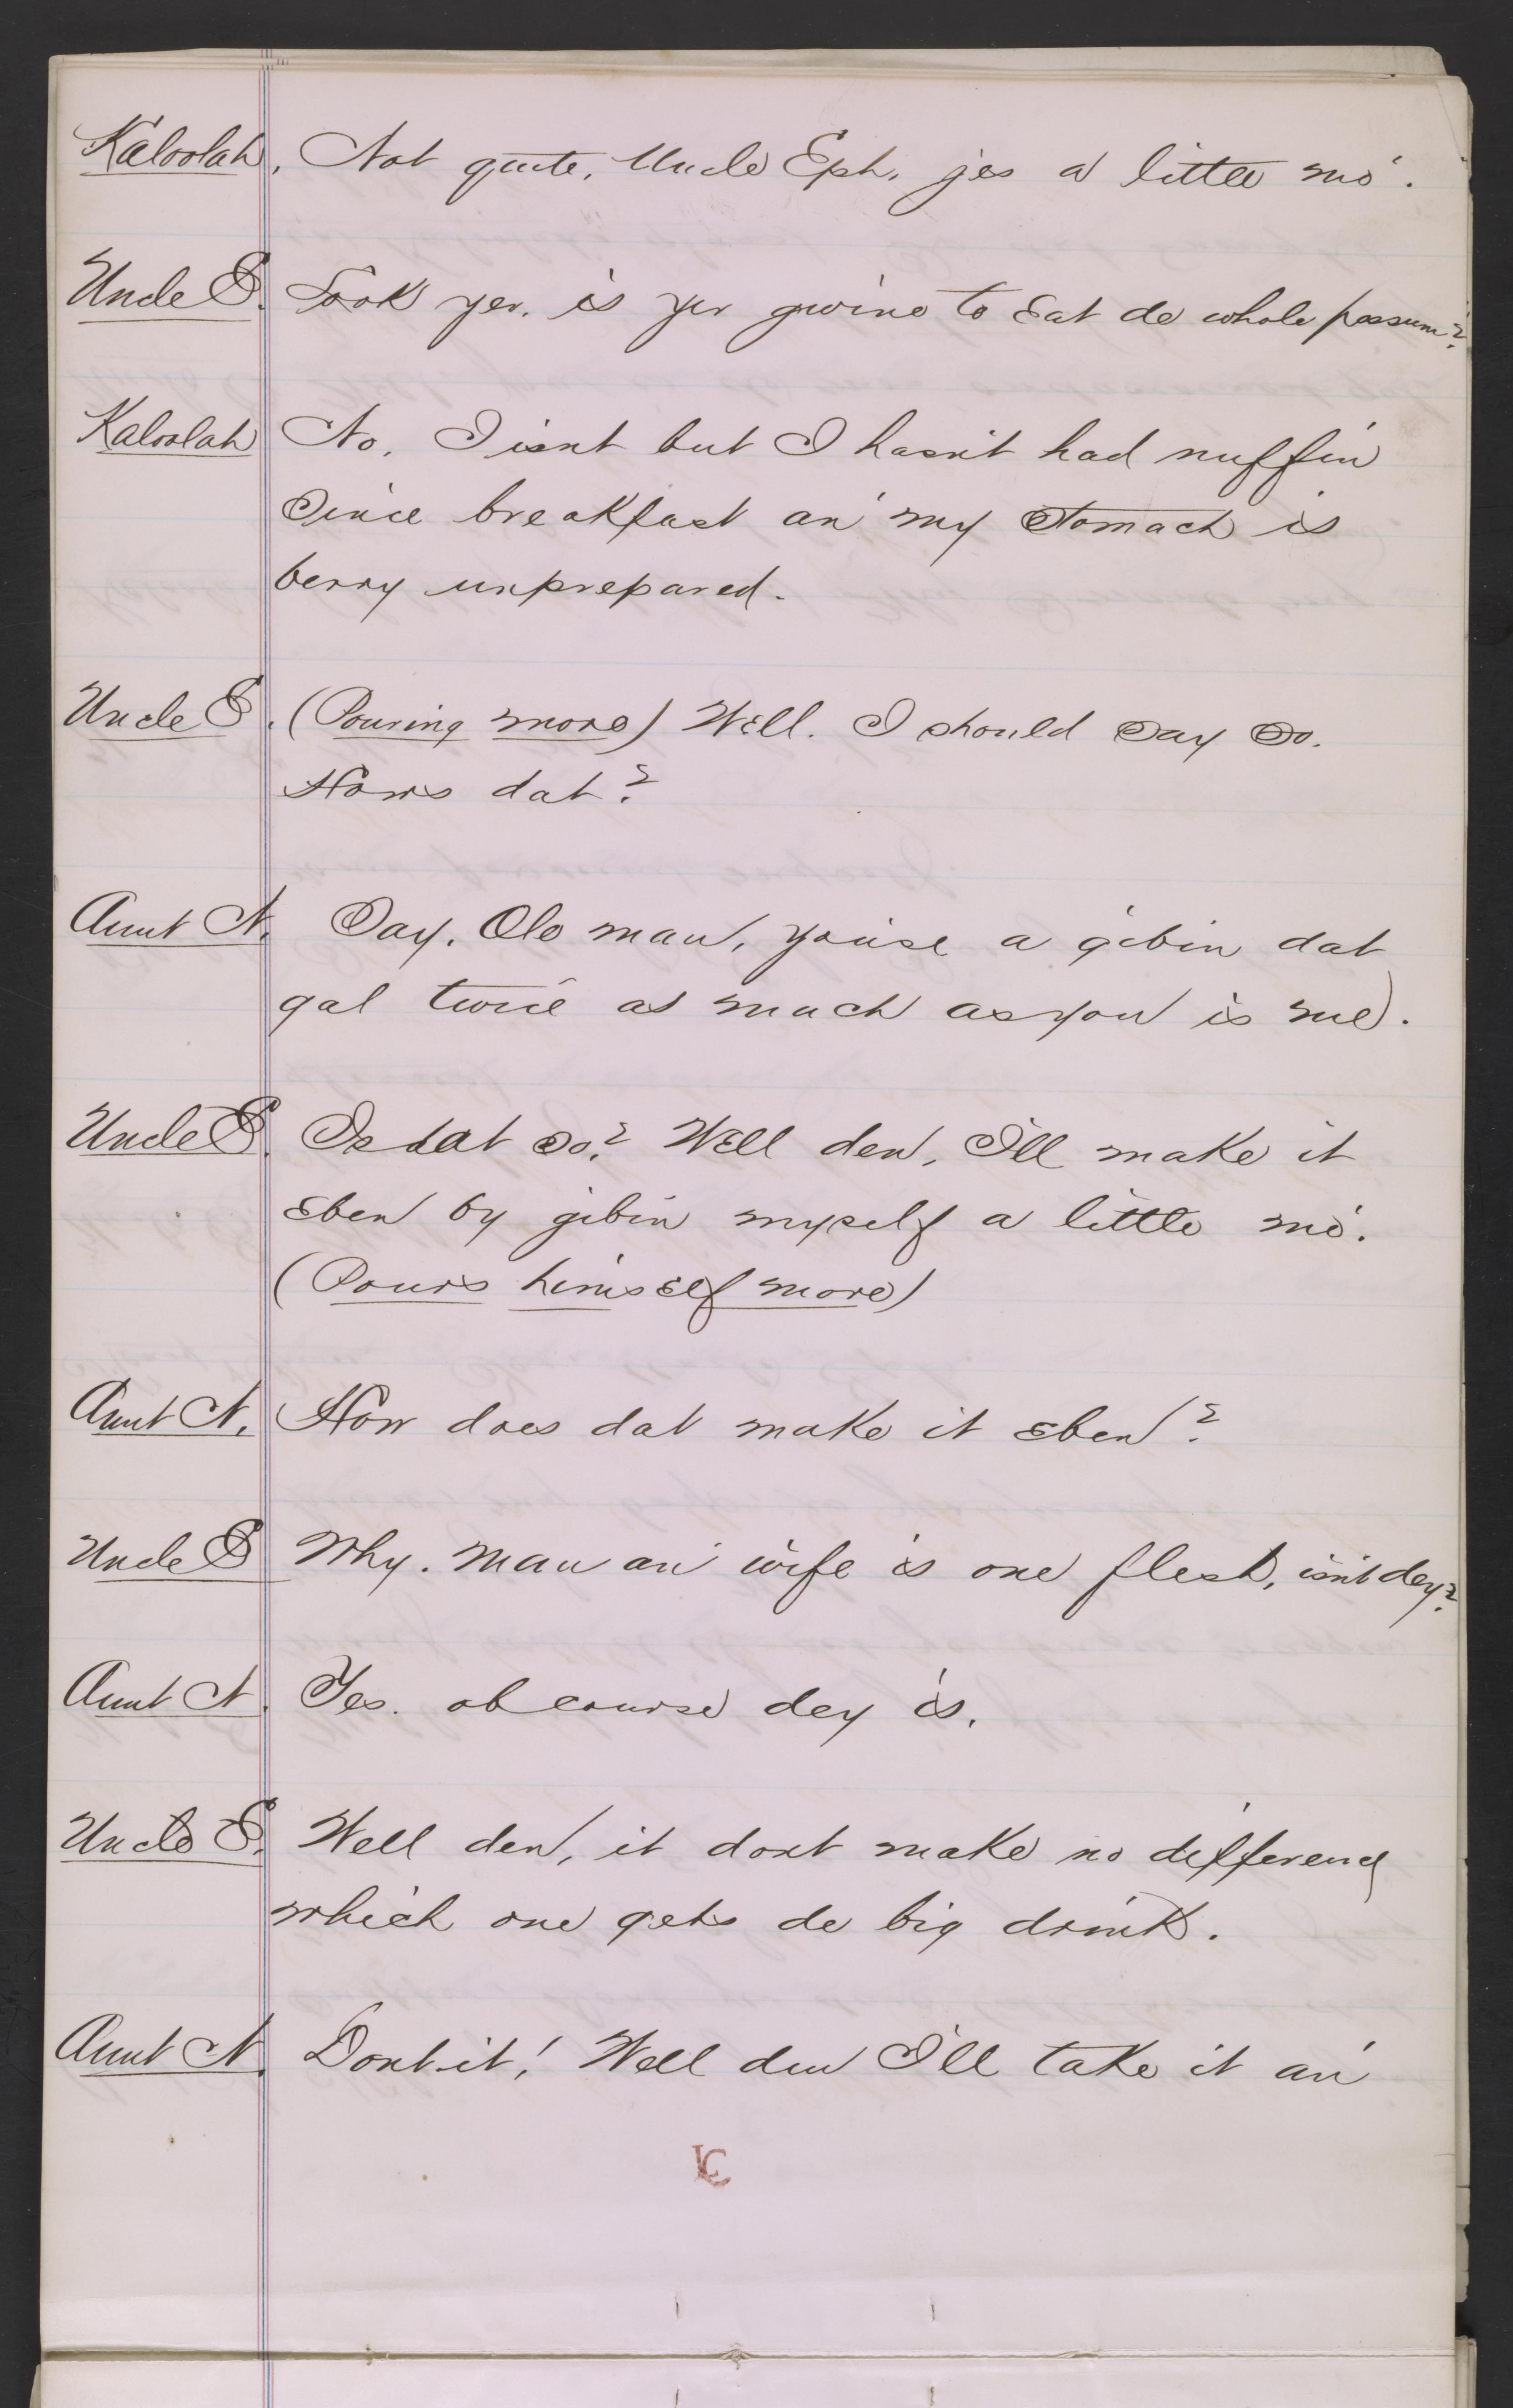 Kaloolah. Not quite, Uncle Eph, jes a little mo'.
Uncle E. Look yer, is yer gwine to Eat de whole possum?
Kaloolah No, I isnt but I hasn't had nuffin'
Since breakfast an' my Stomach is
berry unprepared.
Uncle E. (Pouring more) Well. I should Say So.
Hows dat?
Aunt N. Say, Ole man, you'se a gibin dat
gal twice as much as you is me.
Uncle E. Is dat So? Well den, I'll make it
Eben by gibin myself a little mo'.
(Pours himself more)
Aunt N. How does dat make it Eben?
Uncle E Why. Man an' wife is one flesh, isn't dey?
Aunt N. Yes. ob course dey is.
Uncle E. Well den, it dont make no difference
which one gets de big drink.
Aunt N. Dont it! Well den I'll take it an'
LC